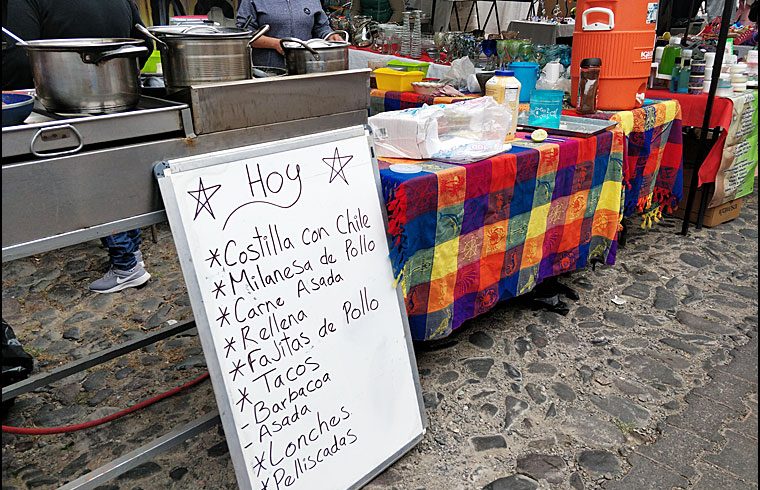 Hoy
* Costilla con Chile
* Milanesa de Pollo
* Carne Asada
* Rellena
* Fajitas de Pollo
* Tacos
- Barbacoa
- Asada
* Lonches
* Pelliscadas